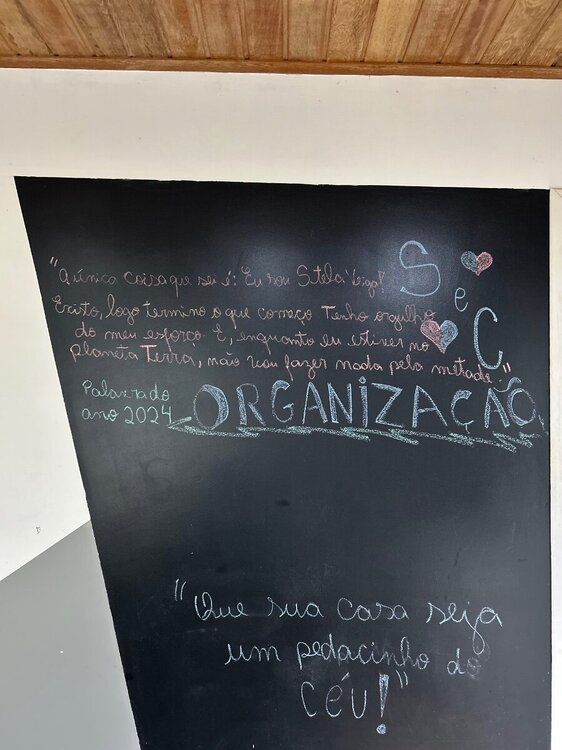 "A única coisa que sei é: Eu sou Stela! Logo!
Existo, logo termino o que começo Tenho orgulho
do meu esforço. E, enquanto eu estiver no
planeta Terra, não vou fazer nada pela metade."
S e C
Palavra do
ano 2024
ORGANIZAÇÃO
"Que sua casa seja
um pedacinho do
CÉU!"